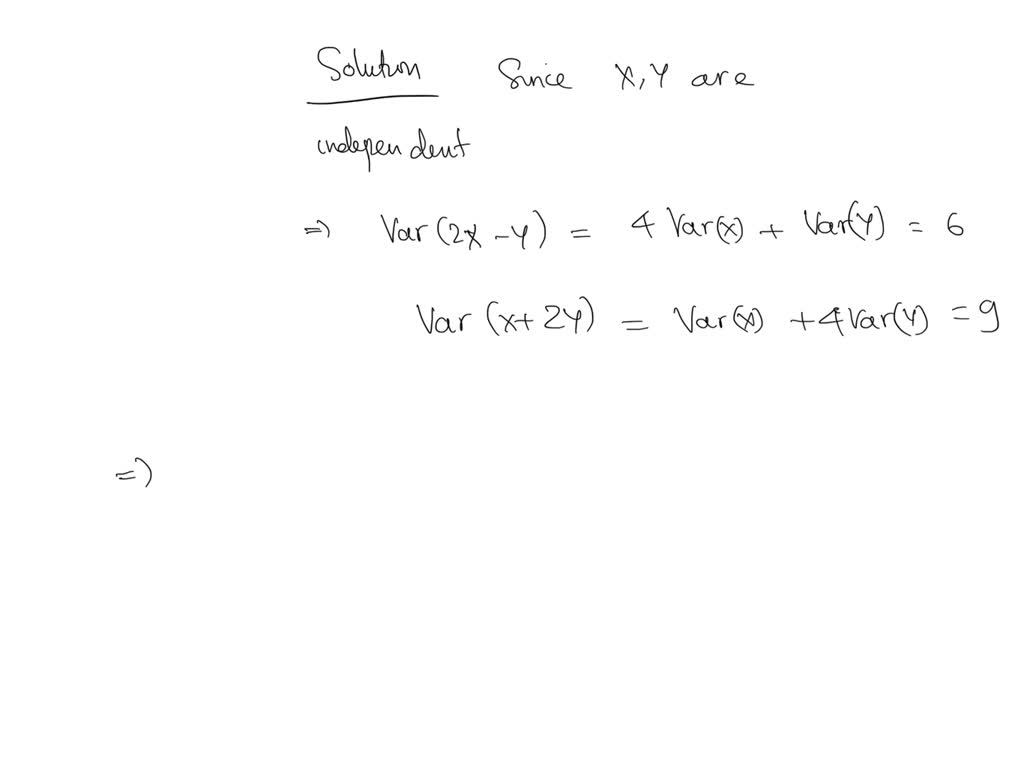 Solution Since X, Y are
independent
=> Var (2X - Y) = 4 Var(X) + Var(Y) = 6
Var (X + 2Y) = Var(X) + 4Var(Y) = 9
=>